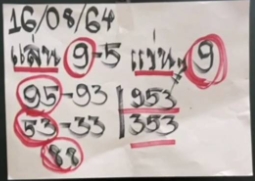 16/08/64
แล่น 9-5 แม่น 9
95-93 953
53-33 353
88